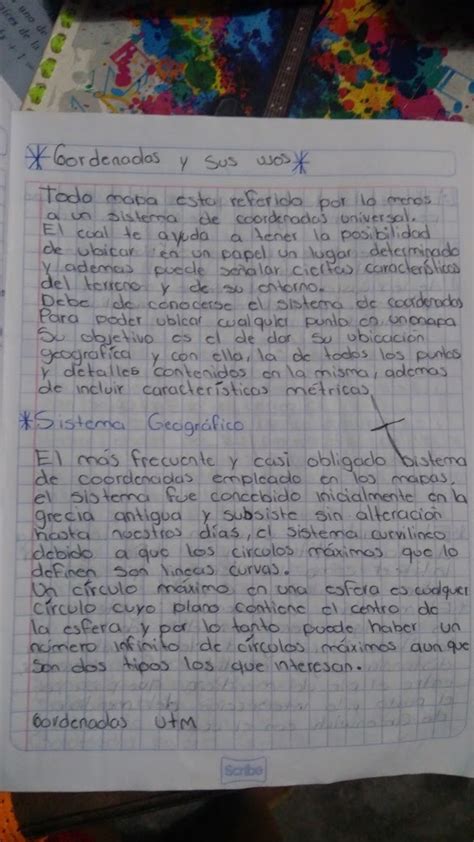 uno de
ices de la
* Cordenadas y sus usos *
Todo mapa esta referido por lo menos
a un sistema de coordenadas universal.
El cual te ayuda a tener la posibilidad
de ubicar en un papel un lugar determinado
y ademas puede señalar ciertas caracteristicas
del terreno y de su entorno.
Debe de conocerse el sistema de coordenadas
Para poder ubicar cualquier punto en un mapa
Su objetivo es el de dar su ubicación
geográfica y con ella, la de todos los puntos
y detalles contenidos en la misma, ademas
de incluir características métricas
* Sistema Geográfico
El más frecuente y casi obligado sistema
de coordenadas empleado en los mapas,
el sistema fue concebido inicialmente en la
grecia antigua y subsiste sin alteración
hasta nuestros días, el sistema curvilineo
debido a que los circulos máximos que lo
definen son lineas curvas.
Un círculo máximo en una esfera es cualquer
círculo cuyo plano contiene el centro de
la esfera y por lo tanto puede haber un
número infinito de círculos máximos aun que
son dos tipos los que interesan.
Cordenadas UTM
Scribe